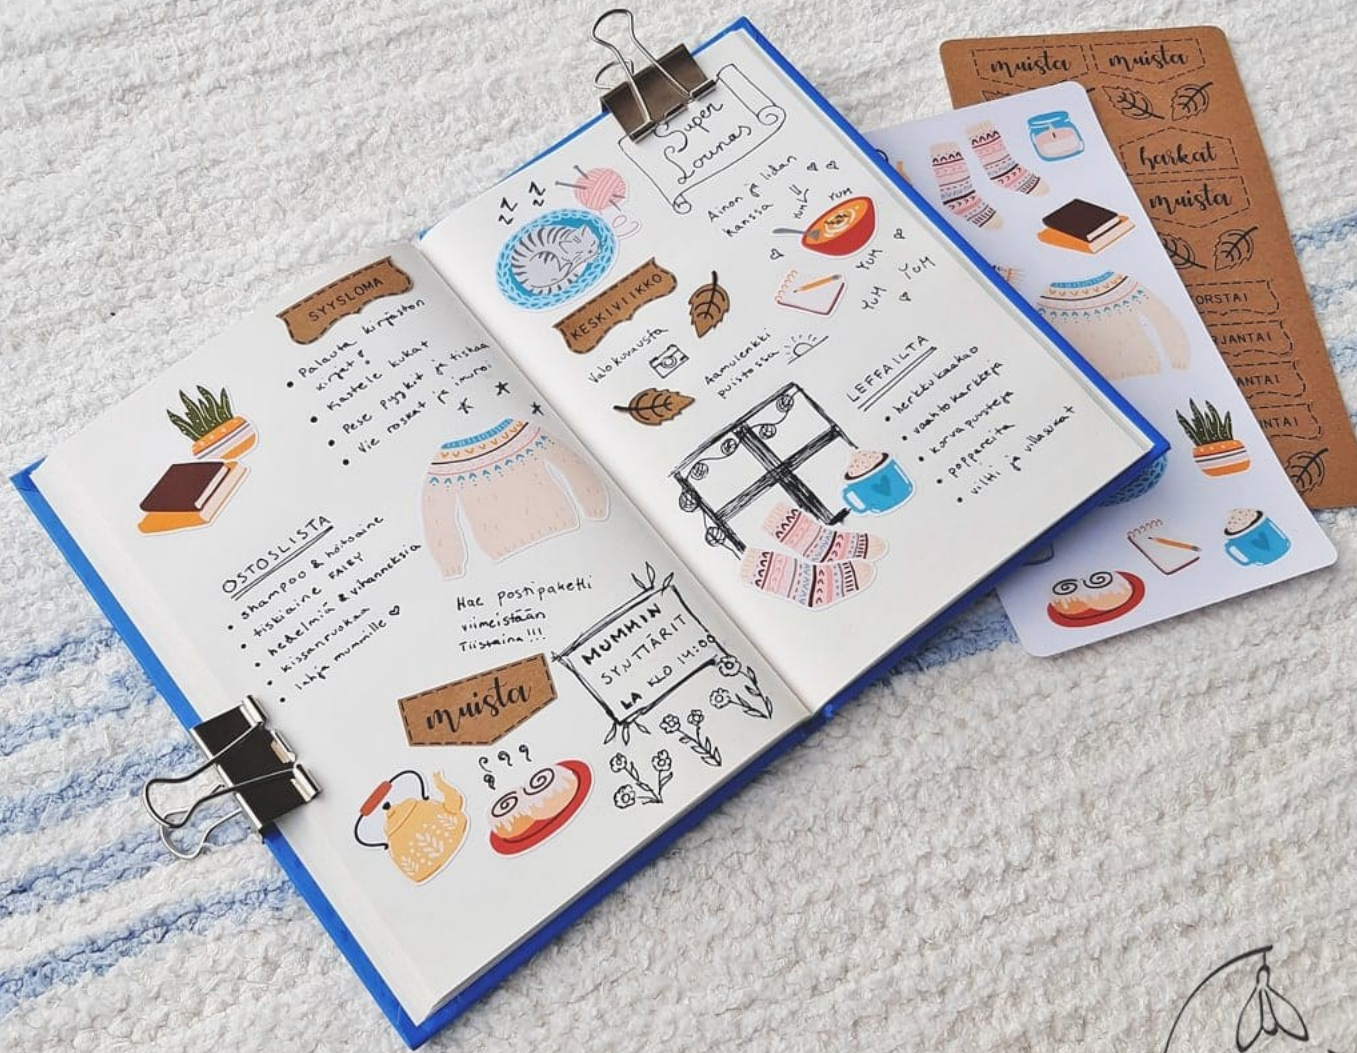 SYYSLOMA
• Palauta kirjaston
kirjat!
• Kastele kukat
• Pese pyykit ja tiskaa
• Vie roskat ja imuroi
OSTOSLISTA
• shampoo & hoitoaine
• tiskiaine FAIRY
• hedelmiä & vihanneksia
• kissanruokaa
• lahja mummille ♡
Hae postipaketti
viimeistään
Tiistaina!!!
muista
MUMMIN
SYNTTÄRIT
LA KLO 14:00
Super
Lounas
Ainon ja Iidan
kanssa
YUM
YUM
YUM
YUM
YUM
KESKIVIIKKO
Valokuvausta
Aamulenkki
puistossa
LEFFAILTA
• herkkukaakao
• vaahtokarkkeja
• korvapuusteja
• poppareita
• viltti ja villasukat
muista
muista
harkat
muista
ORSTAI
RJANTAI
ANTAI
NTAI